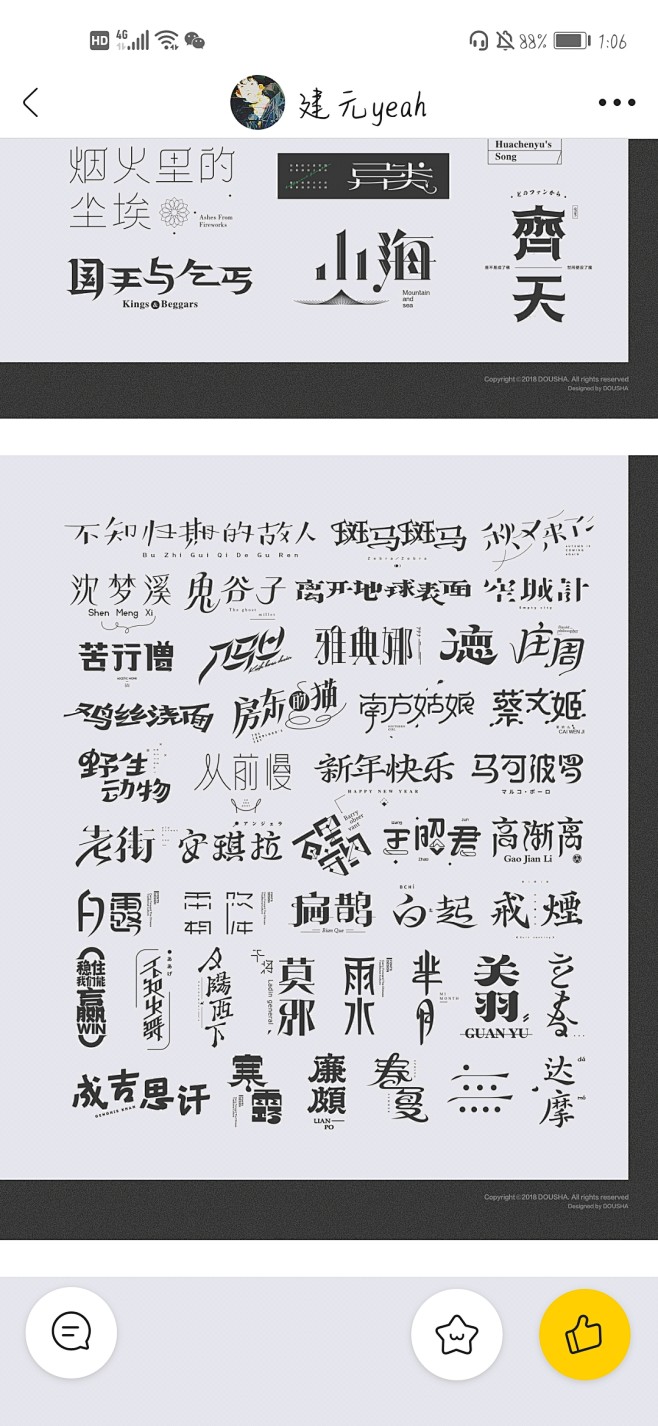 HD 4G 88% 1:06
建元yeah
烟火里的
尘埃
Ashes From
Fireworks
异类
Huachenyu's
Song
国王与乞丐
Kings & Beggars
山海
Mountain
and
sea
齊天
Copyright ©2018 DOUSHA. All rights reserved
Designed by DOUSHA
不知归期的故人
Bu Zhi Gui Qi De Gu Ren
斑马斑马
Zebra/Zebra
秋又来了
沈梦溪
Shen Meng Xi
鬼谷子
离开地球表面
空城計
Empty city
苦行僧
雅典娜
德
庄周
鸡丝浇面
房东的猫
南方姑娘
蔡文姬
CAI WEN JI
野生
动物
从前慢
新年快乐
HAPPY NEW YEAR
马可波罗
マルコ·ポーロ
老街
安琪拉
アンジェラ
王昭君
高渐离
Gao Jian Li
白露
扁鹊
Bian Que
白起
戒煙
稳住
我们能
赢
WIN
夕陽西下
莫邪
Ladin general
雨水
芈月
MI
MONTH
关羽
GUAN YU
立春
成吉思汗
GENGHIS KHAN
寒露
廉頗
LIAN
PO
春夏
达摩
dá
mó
Copyright ©2018 DOUSHA. All rights reserved
Designed by DOUSHA